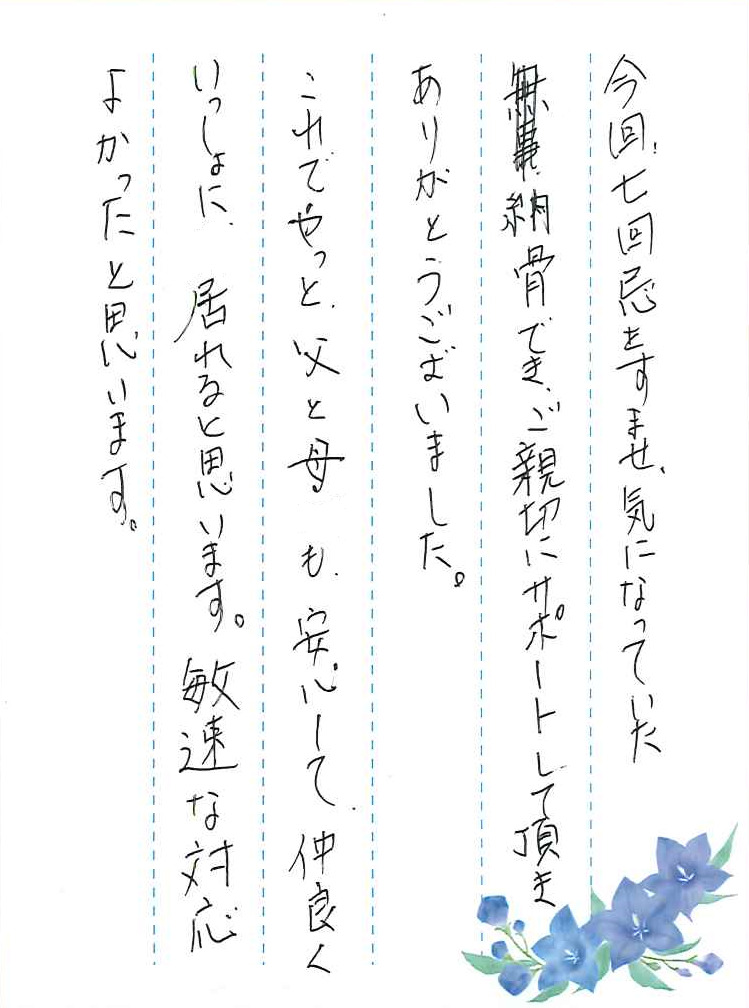 今回、七回忌をすませ、気になっていた
無事、納骨でき、ご親切にサポートして頂き
ありがとうございました。
これでやっと、父と母も、安心して、仲良く
いっしょに、居れると思います。敏速な対応
よかったと思います。